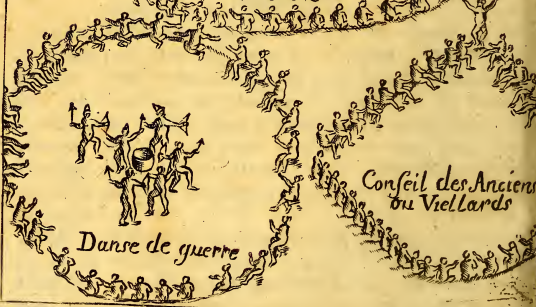 Danse de guerre
Conseil des Anciens
ou Viellards